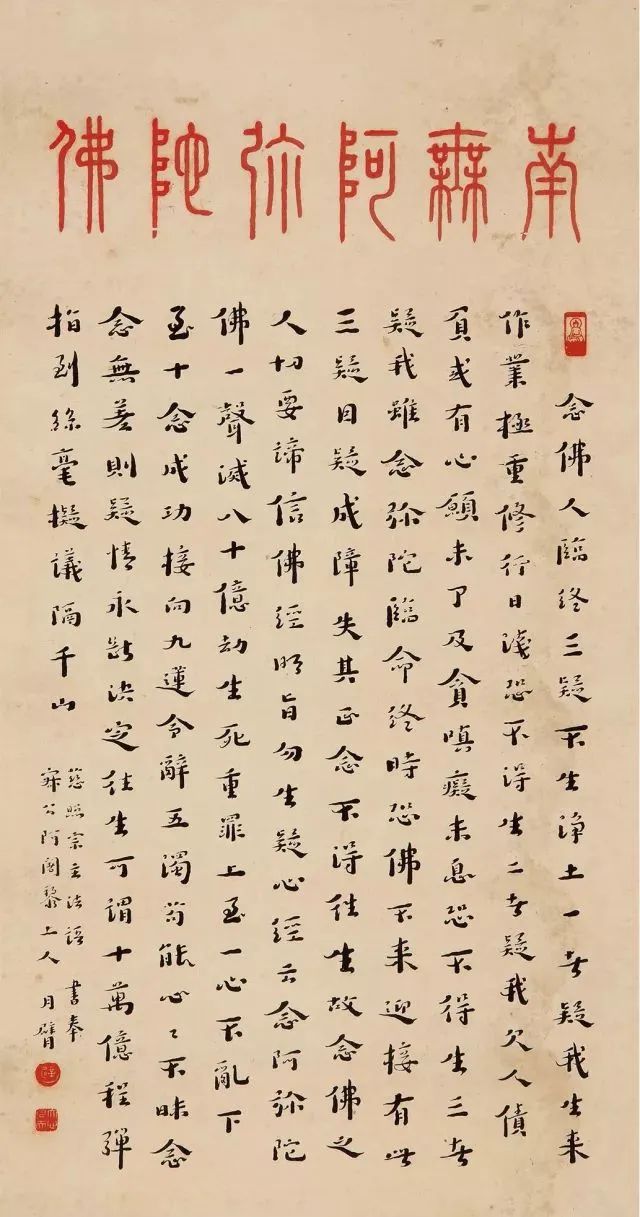 南無阿弥陀佛
念佛人臨终三疑不生净土一者疑我生来
作業極重修行日淺恐不得生二者疑我欠人債
負或有心願未了及貪嗔癡未息恐不得生三者
疑我雖念弥陀臨命终時恐佛不来迎接有此
三疑因疑成障失其正念不得往生故念佛之
人切要諦信佛經明旨勿生疑心經云念阿弥陀
佛一聲滅八十億劫生死重罪上至一心不亂下
至十念成功接向九蓮令辭五濁苟能心〻不昧念
念無差則疑情永斷决定往生可謂十萬億程彈
指到絲毫擬議隔千山
慈照宗主法語 書奉
寂公阿闍黎上人 月臂